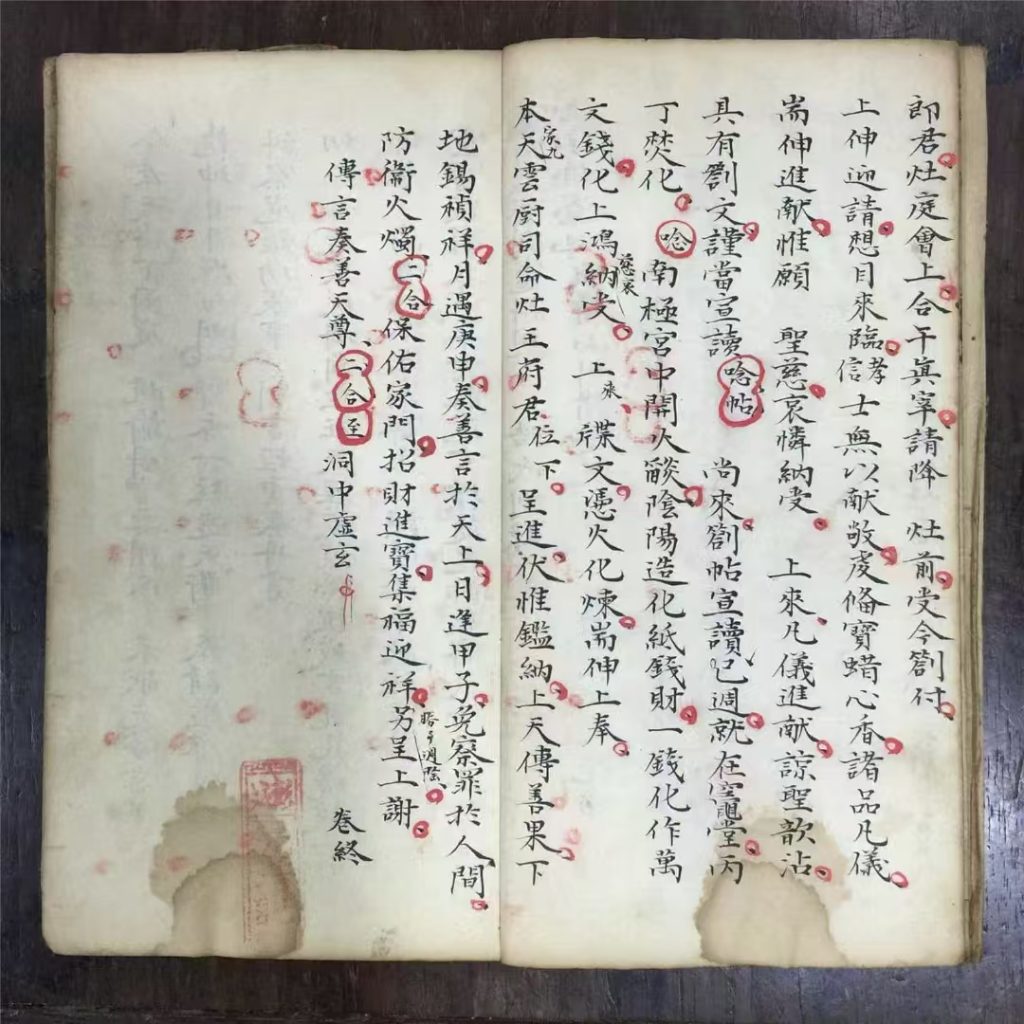 郎君灶庭會上合千真宰請降　灶前受今劄付
上伸迎請想目來臨孝信士無以献敬虔俻寶蜡心香諸品凡儀
耑伸進献惟願　聖慈哀憐納受　上來凡儀進献諒聖歆沾
具有劄文謹當宣讀唸帖　尚來劄帖宣讀已週就在竈堂丙
丁焚化唸南極宮中開火燄陰陽造化紙錢財一錢化作萬
文錢化上鴻納受　上來牒文憑火化煉耑伸上奉
本天雲厨司命灶王府君位下　呈進伏惟鑑納上天傳善果下
地錫禎祥月遇庚申奏善言於天上日逢甲子免察罪於人間
防衞火燭二合保佑家門招財進寶集福迎祥另呈上謝
傳言奏善天尊二合至　洞中虛玄
卷終